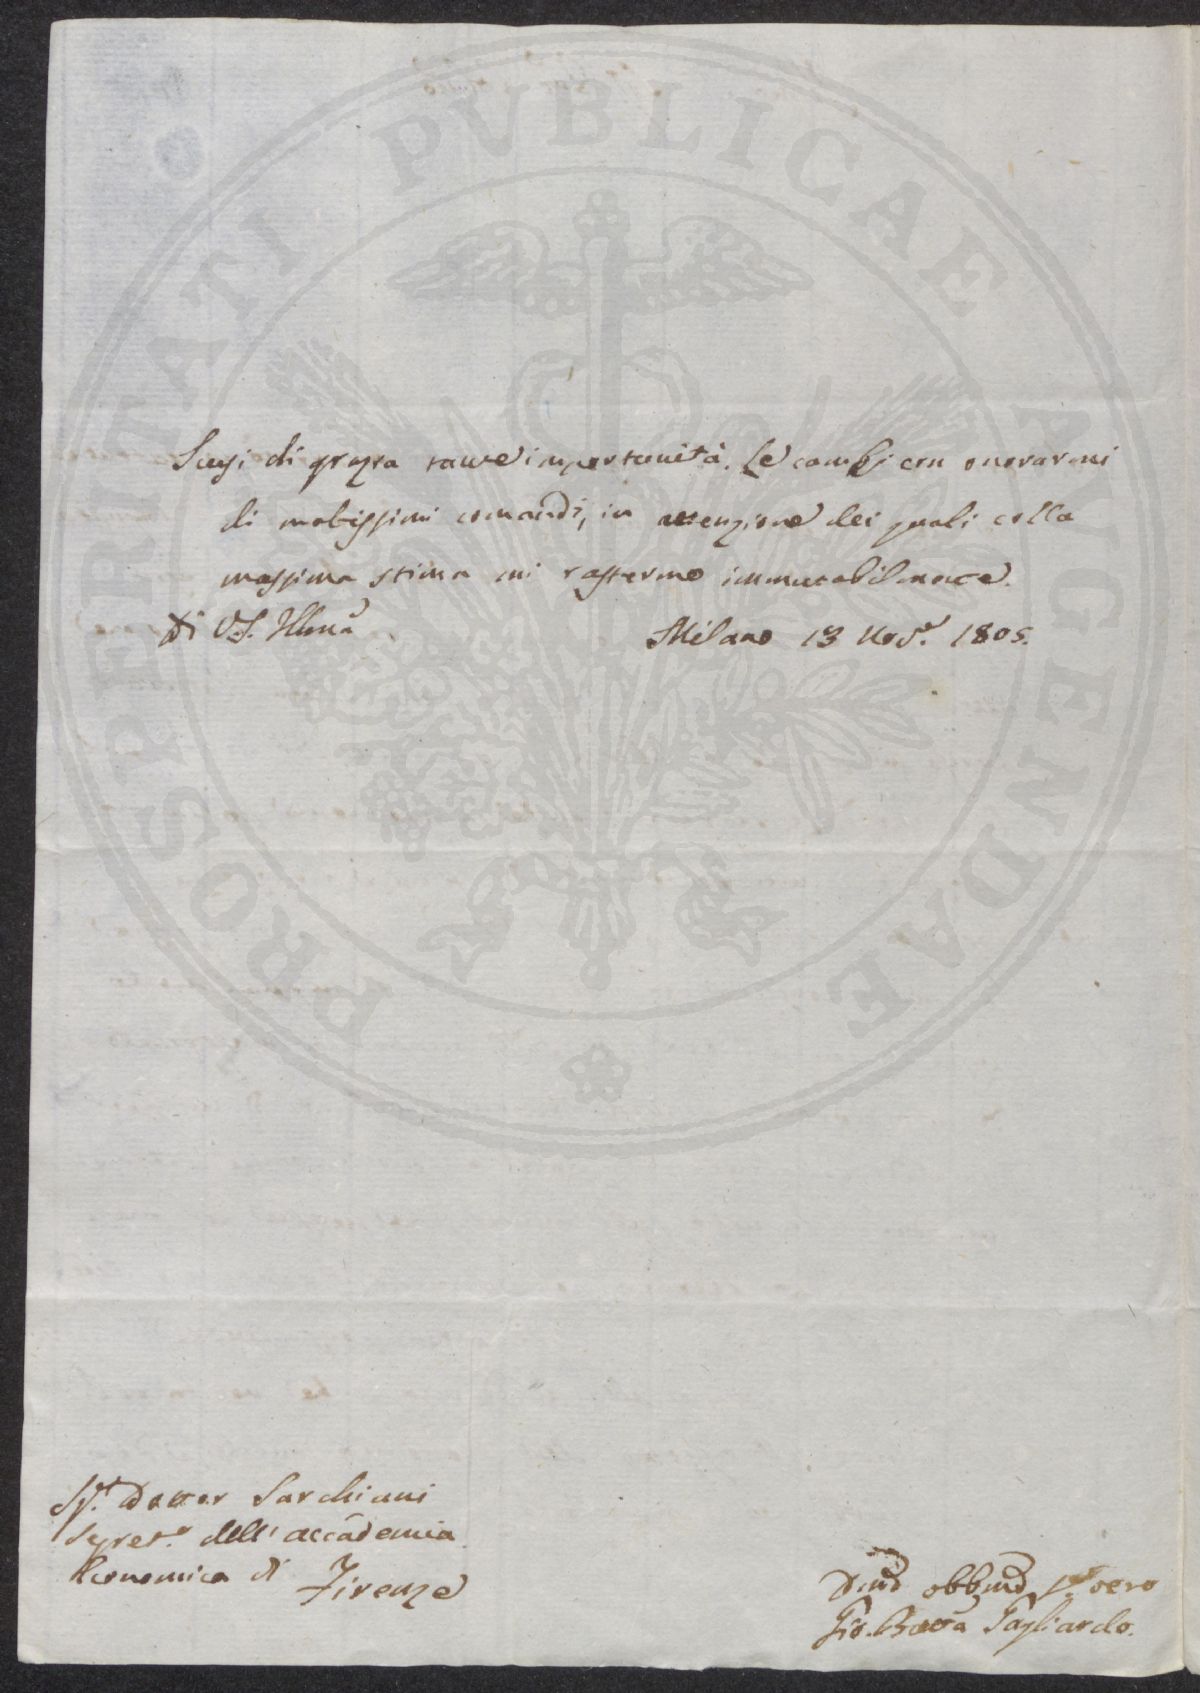 PROSPERITATI PVBLICAE AVGENDAE
Scusi di grazia tante importunità. Le cambj con onorarmi
di nobissimi comandi, in attenzione dei quali colla
massima stima mi raffermo immutabilmente.
Di V.S. Illmã
Milano 13 Nov.e 1805.
Sig.r Dottor Sarchiani
Segret.o dell'accademia
Economica di Firenze
Devmõ obbmõ
Gio. Batta Gagliardo.